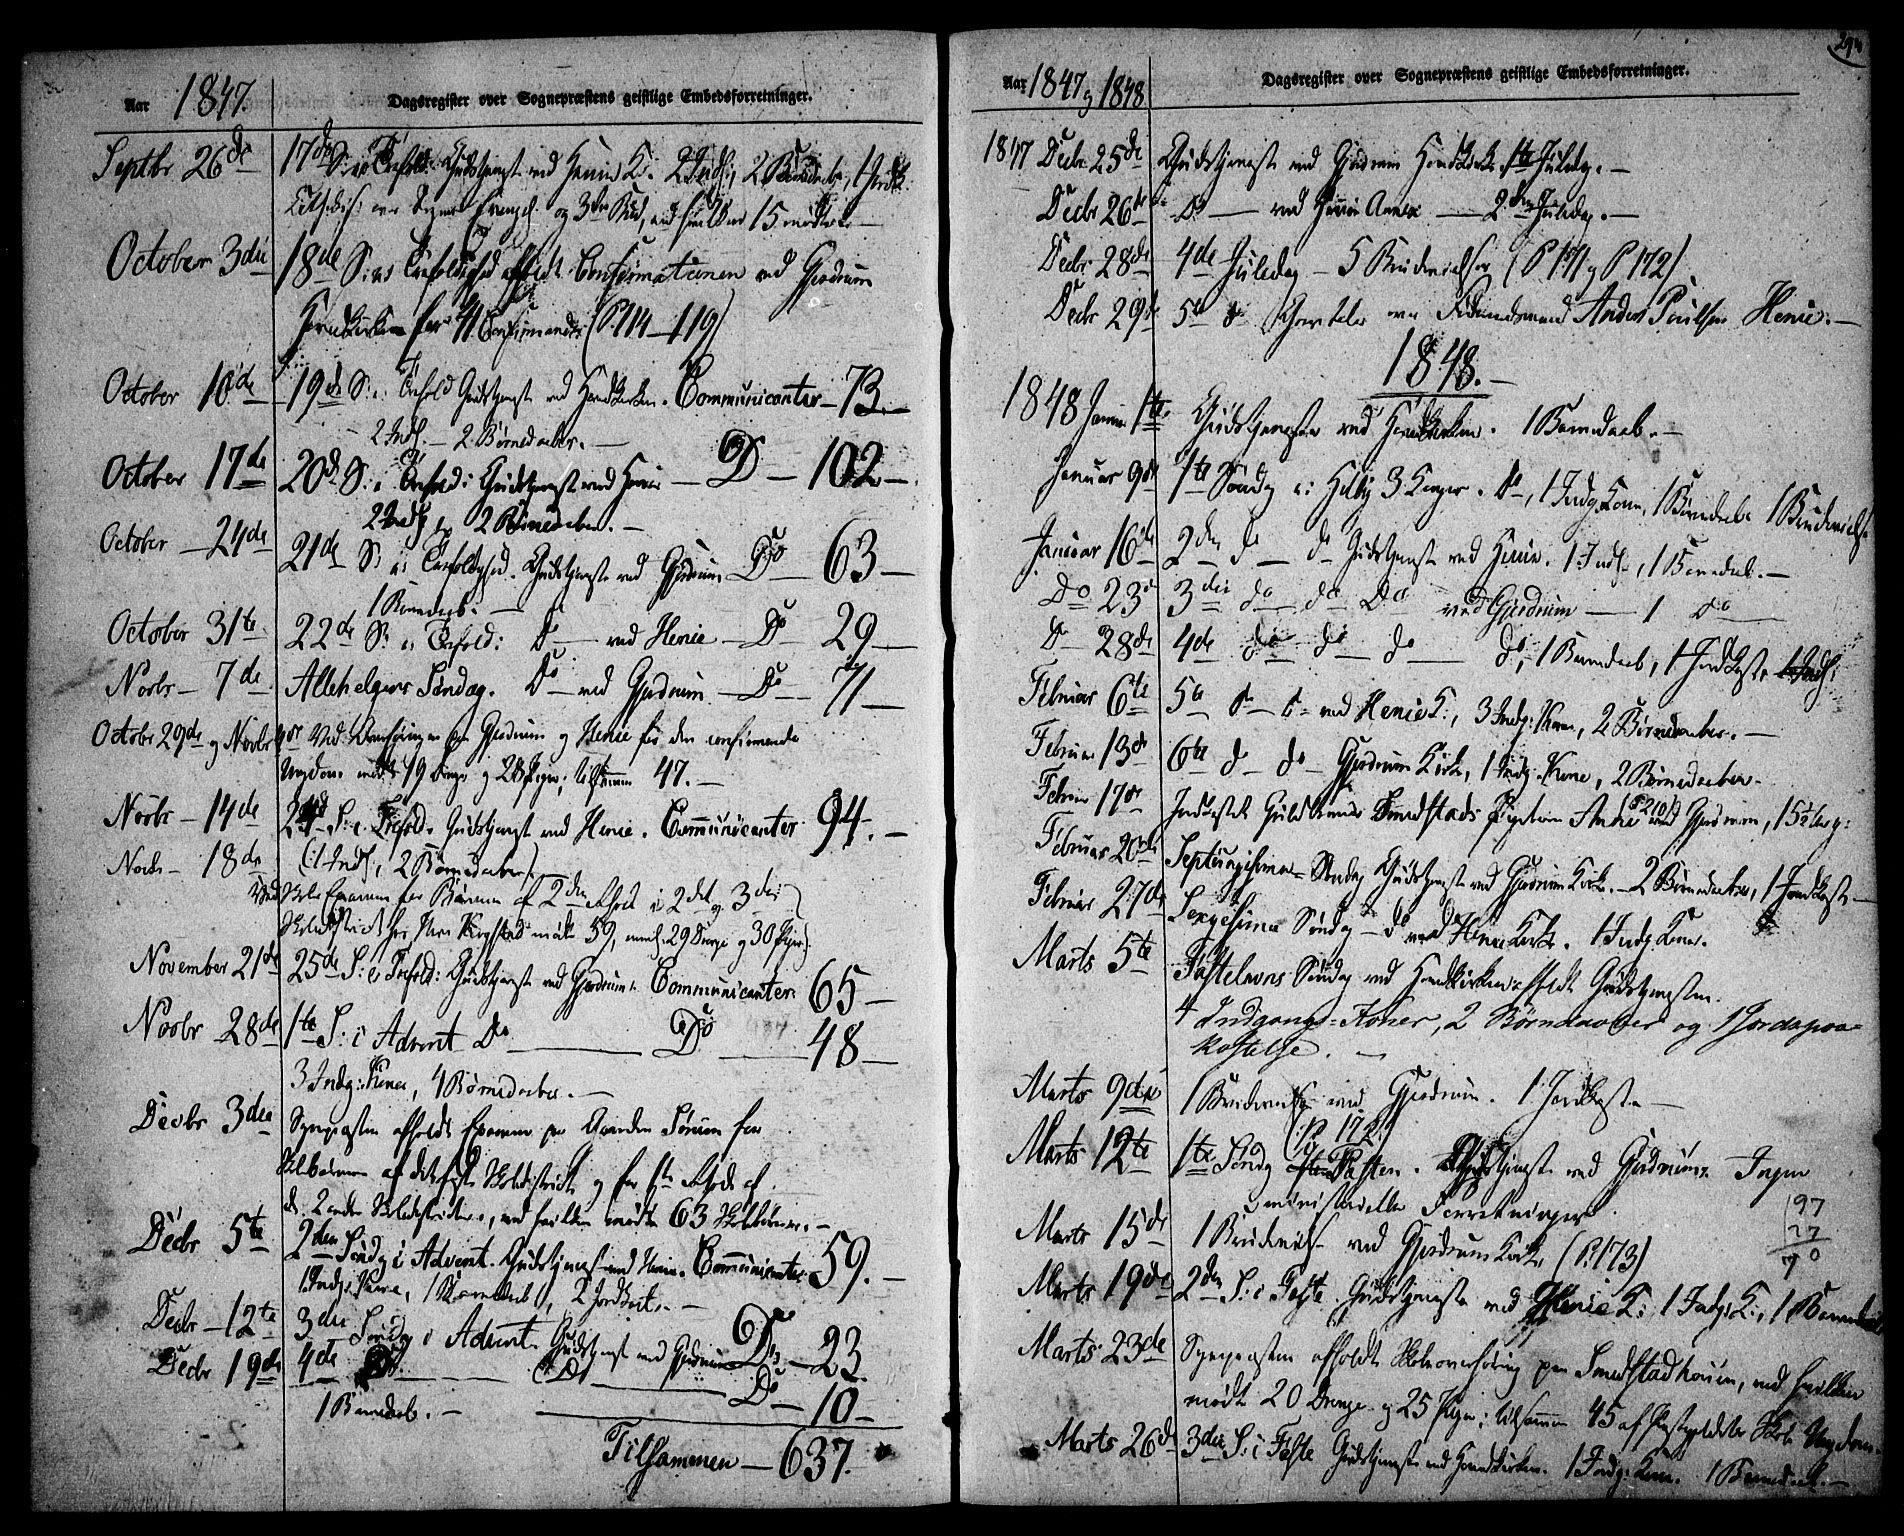 Aar 1847.
Dagsregister over Sognepræstens geistlige Embedsforretninger.
Septbr 26de 17de S: e: Trefold: Gudstjeneste ved Henie K: 2 Indl:, 2 Barnedaab, 1 Jordk.
og 3die Bud, ved hvilken 15 mødte
October 3die 18de S: e: Trefoldighed afholdt Confirmationen ved Gjerdrum
Hovedkirke for 41 Confirmander (P. 114–119)
October 10de 19de S: e: Trefold Gudstjeneste ved Hovedkirken. Communicanter – 73. –
2 Indl. – 2 Børnedaaber. –
October 17de 20de S: e: Trefold: Gudstjeneste ved Henie – Do – 102 –
2 Indl: og 2 Børnedaaber. –
October – 24de 21de S: e: Trefoldighed. Gudstjeneste ved Gjerdrum Do – 63 –
1 Barnedaab. –
October 31te 22de S: e: Trefold: Do – ved Henie – Do – 29 –
Novbr – 7de Allehelgens Søndag. Do – ved Gjerdrum – Do – 71 –
Octobr 29de og Novbr Ved for Gjerdrum og Henie for den confirmerede
Ungdom mødte 19 Drenge og 28 Piger; tilsammen 47. –
Novbr – 14de S: e: Trefold. Gudstjeneste ved Henie. Communicanter 94. –
Novbr – 18de (: 1 Indl:, 2 Børnedaaber) –
Ved Skole Examen for Børnene af 2den i 2det og 3die
Skoledistrict mødte 59, 29 Drenge og 30 Piger).
November 21de 25de S: e: Trefold: Gudstjeneste ved Gjerdrum. Communicanter: 65 –
Novbr 28de 1te S: i Advent Do – Do – 48 –
3 Indg: Koner, 4 Børnedaaber. –
Decbr 3die Sognepræsten afholdt Examen paa Gaarden Sørum for
Skolebørnene af det Skoledistrict og for 1te af
det 2andet Skoledistrict, ved hvilken mødte 63 Skolebørn. –
Decbr 5te 2den Søndag i Advent. Gudstjeneste ved Henie. Communicanter 59. –
1 Indg: Kone, 1 Barnedaab, 2 Jordkast. –
Decbr – 12te 3die Søndag i Advent Gudstjeneste ved Gjerdrum Do – 23.
Decbr 19de 4de Do – Do – Do – 10 –
1 Barnedaab. –
Tilsammen – 637.
Aar 1847 og 1848
Dagsregister over Sognepræstens geistlige Embedsforretninger.
1847 Decbr 25de Gudstjeneste ved Gjerdrum Hovedkirke 1te Juledag. –
Decbr 26de Do – ved Henie Annex – 2den Juledag. –
Decbr 28de 4de Juledag – 5 Brudevielser (P 171 og P 172)
Decbr 29de 5te do over Anders Poulsen Henie. –
1848. –
1848 Januar 1te Gudstjeneste ved Hovedkirken. 1 Barnedaab. –
Januar 9de 1te Søndag e: Hellig 3 Konger. Do, 1 Indg: Kone, 1 Barnedaab 1 Brudevielse
Januar 16de 2den do – do Gudstjeneste ved Henie. 1 Indl:, 1 Barnedaab. –
Do 23de 3die do do Do ved Gjerdrum – 1 Do –
Do 28de 4de do – do – do – do, 1 Barnedaab, 1 Jordkastelse
Februar 6te 5te do – do ved Henie K:, 3 Indg: Koner, 2 Børnedaaber. –
Februar 13de 6te do – do Gjerdrum Kirke, 1 Indg: Kone, 2 Børnedaaber.
Februar 17de (P 210) ved Gjerdrum,
Februar 20de Septuagesima Søndag Gudstjeneste ved Gjerdrum Kirke. – 2 Børnedaaber, 1 Jordkastelse –
Februar 27de Sexgesima Søndag – do ved Henie Kirke. 1 Indg: Kone.
Marts 5te Fastelavns Søndag ved Hovedkirken afholdt Gudstjenesten.
4 Indgangs-Koner, 2 Børnedaaber og 1 Jordspaa-
kastelse. –
Marts 9de 1 Brudevielse ved Gjerdrum. 1 Jordkastelse –
(P. 172)
Marts 12te 1te Søndag i Fasten. Gudstjeneste ved Gjerdrum. Ingen
ministerielle Forretninger.
97
27
70
Marts 15de 1 Brudevielse ved Gjerdrum Kirke (P. 173)
Marts 19de 2den S: i Faste. Gudstjeneste ved Henie K: 1 Indg: K:, 1 Barnedaab
Marts 23de Sognepræsten afholdt Skoleoverhøring paa Smedstadhougen, ved hvilken
mødte 20 Drenge og 25 Piger; tilsammen 45 af Skole Ungdom.
Marts 26de 3die S: i Faste Gudstjeneste ved Hovedkirken. 1 Indg: Kone. 1 Barnedaab. –